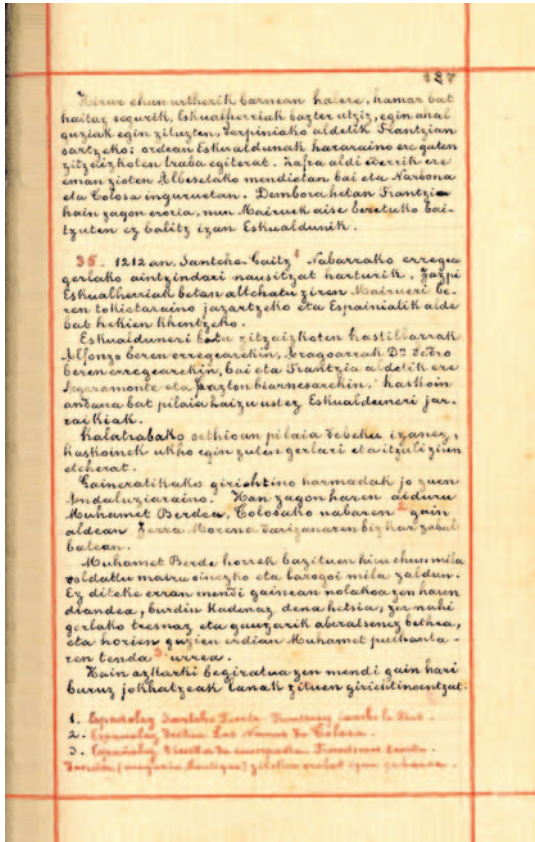 187
Hirur ehun urtherik barnean halere, hamar bat
haitaz segurik, Eskualherriak bazter utziz, egin ahal
guziak egin zituzten, Perpiniako aldetik Frantzian
sartzeko: ordean Eskualdunak hararaino ere gaten
zitzeizkoten traba egiterat. Zafra aldi ederrik ere
eman zioten Albeseldako mendietan bai eta Narbona
eta Tolosa inguruetan. Dembora hetan Frantzia
hain zagon eroria, nun Mairuek aise beretuko bai-
tzuten ez balitz izan Eskualdunik.
35. 1212 an, Santcho-Gaitz 1 Nabarrako erregea
gerlako aintzindari nausitzat harturik, Zazpi
Eskualherriak betan altchatu ziren Mairueri be-
ren tokietaraino jazartzeko eta Espainialik alde
bat hekien khentzeko.
Eskualduneri lotu zitzaizkoten Kastillarrak
Alfonso beren erregearekin, Aragoarrak Dn Pedro
beren erregearekin, bai eta Frantzia aldetik ere
Segeramonte eta Gazton biarnesarekin, kaskoin
andana bat pilaia haizu ustez Eskualduneri jar-
raikiak.
Kalatrabako sethioan pilaia debeku izanez,
kaskoinek ukho egin zuten gerlari eta itzuli ziren
etcherat.
Gaineratikako girichtino harmadak jo zuen
Andaluziaraino. Han zagon haren aiduru
Muhamet Berdea, Tolosako nabaren 2 gain
aldean Zerra Morena daritzanaren bizkar zabal
batean.
Muhamet Berde horrek bazituen hiru ehun mila
soldadu mairu oinezko eta larogoi mila zaldun.
Ez diteke erran mendi gainean nolakoa zen haren
diandea, burdin kadenaz dena hetsia, zer nahi
gerlako tresnaz eta gauzarik aberatsenez bethea,
eta horien guzien erdian Muhamet puchanta-
ren tenda 3 urrea.
Hain azkarki begiratua zen mendi gain hari
buruz jokhatzeak lanak zituen girichtinoentzat.
1. Españolez Santcho
2. Españolez Las Navas de Tolosa.
3. Españolez Tienda de campaña